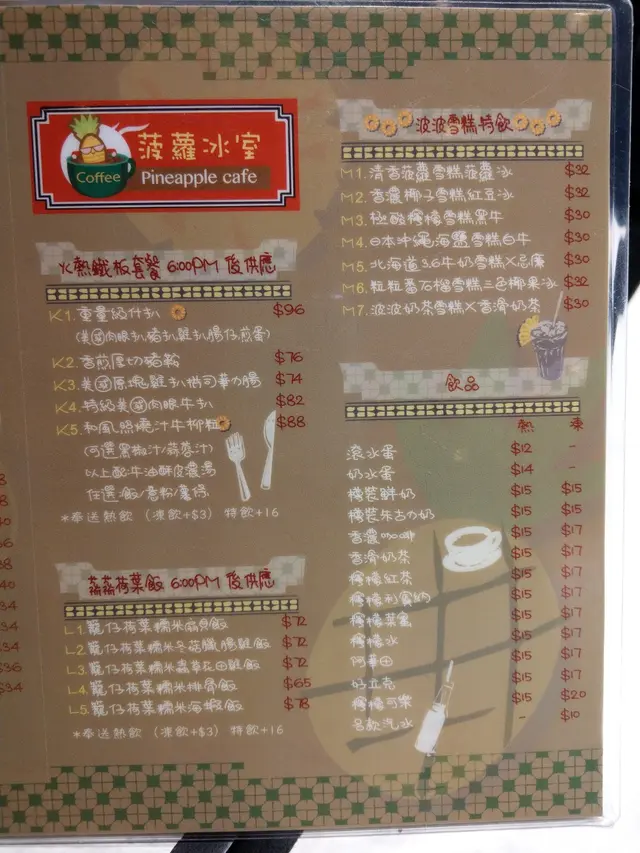 菠蘿冰室
Coffee
Pineapple cafe
火熱鐵板套餐 6:00PM 後供應
K1. 重量級什扒 $96
(美國肉眼扒豬扒雞扒腸仔煎蛋)
K2. 香煎厚切豬鞍 $76
K3. 美國原塊雞扒拼可華力腸 $74
K4. 特級美國肉眼牛扒 $82
K5. 和風照燒汁牛柳粒 $88
(可選黑椒汁/蒜蓉汁)
以上配牛油酥皮濃湯
任選:飯/意粉/薯條
*奉送熱飲 (凍飲+$3) 特飲+16
荷葉飯 6:00PM 後供應
L1. 籠仔荷葉糯米扇貝飯 $72
L2. 籠仔荷葉糯米冬菇臘腸雞飯 $72
L3. 籠仔荷葉糯米蟲草花田雞飯 $72
L4. 籠仔荷葉糯米排骨飯 $65
L5. 籠仔荷葉糯米海蝦飯 $78
*奉送熱飲 (凍飲+$3) 特飲+16
波波雪糕特飲
M1. 清香菠蘿雪糕菠蘿冰 $32
M2. 香濃椰子雪糕紅豆冰 $32
M3. 極酸檸檬雪糕黑牛 $30
M4. 日本沖繩海鹽雪糕白牛 $30
M5. 北海道3.6牛奶雪糕X忌廉 $30
M6. 粒粒番石榴雪糕三色椰果冰 $32
M7. 波波奶茶雪糕X香滑奶茶 $30
飲品
熱 凍
滾水蛋 $12 -
奶水蛋 $14 -
樽裝鮮奶 $15 $15
樽裝朱古力奶 $15 $15
香濃咖啡 $15 $17
香滑奶茶 $15 $17
檸檬紅茶 $15 $17
檸檬利賓納 $15 $17
檸檬菜蜜 $15 $17
檸檬水 $15 $17
阿華田 $15 $17
好立克 $15 $17
檸檬可樂 $15 $20
各款汽水 - $10
8
8
40
36
38
40
34
34
$36
$34